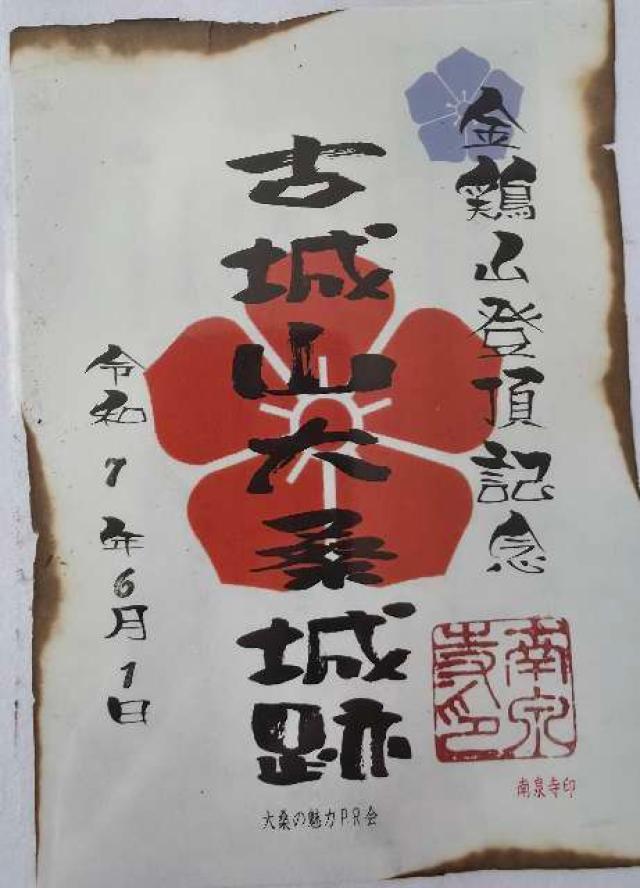 金鶏山登頂記念
古城山大桑城跡
令和7年6月1日
南泉寺印
南泉寺印
大桑の魅力PR会